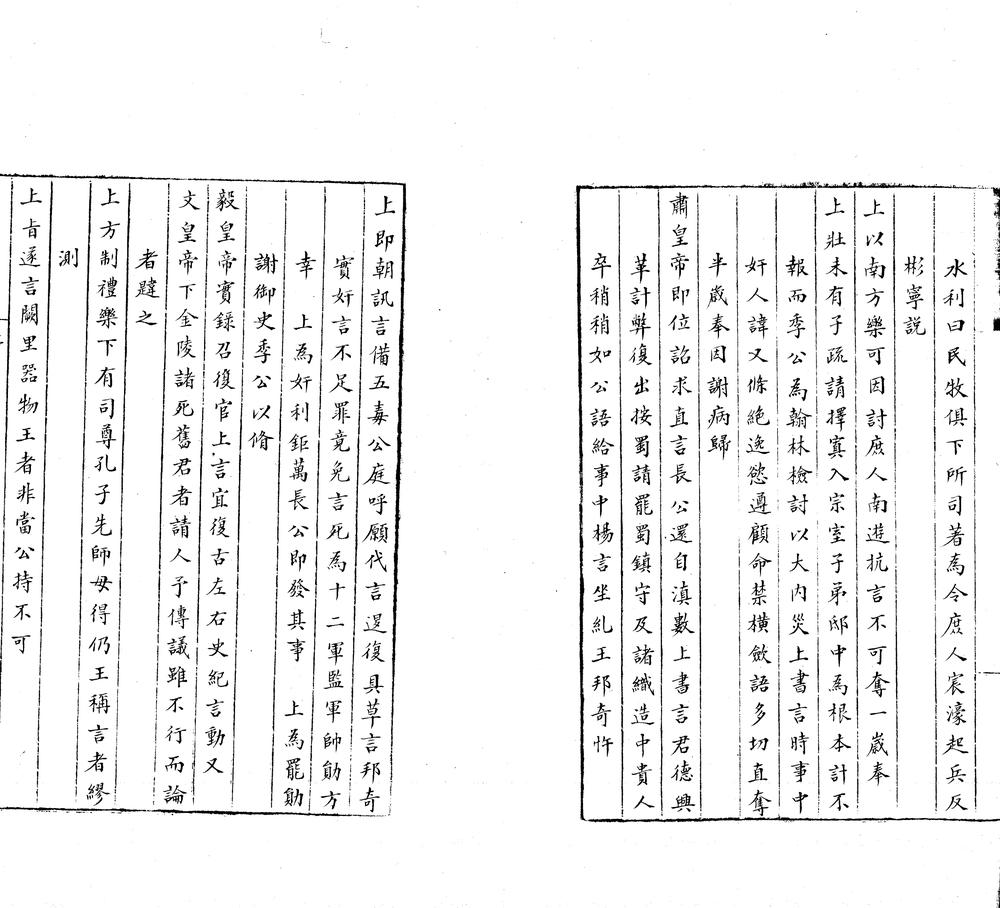 水利曰民牧俱下所司著為令庶人宸濠起兵反
彬寧說
上以南方樂可因討庶人南遊抗言不可奪一歲奉
上壯未有子疏請擇寘入宗室子弟邸中為根本計不
報而季公為翰林檢討以大內災上書言時事中
奸人諱又條絕逸慾遵顧命禁橫斂語多切直奪
半歲奉因謝病歸
肅皇帝即位詔求直言長公還自滇數上書言君德興
革計弊復出按蜀請罷蜀鎮守及諸織造中貴人
卒稍稍如公語給事中楊言坐糺王邦奇忤
上即朝訊言備五毒公庭呼願代言退復具草言邦奇
實奸言不足罪竟免言死為十二軍監軍帥勛方
幸 上為奸利鉅萬長公即發其事 上為罷勛
謝御史季公以脩
毅皇帝實錄召復官上言宜復古左右史紀言動又
文皇帝下金陵諸死舊君者請人予傳議雖不行而論
者韙之
上方制禮樂下有司尊孔子先師毋得仍王稱言者繆
測
上肯遂言闕里器物王者非當公持不可